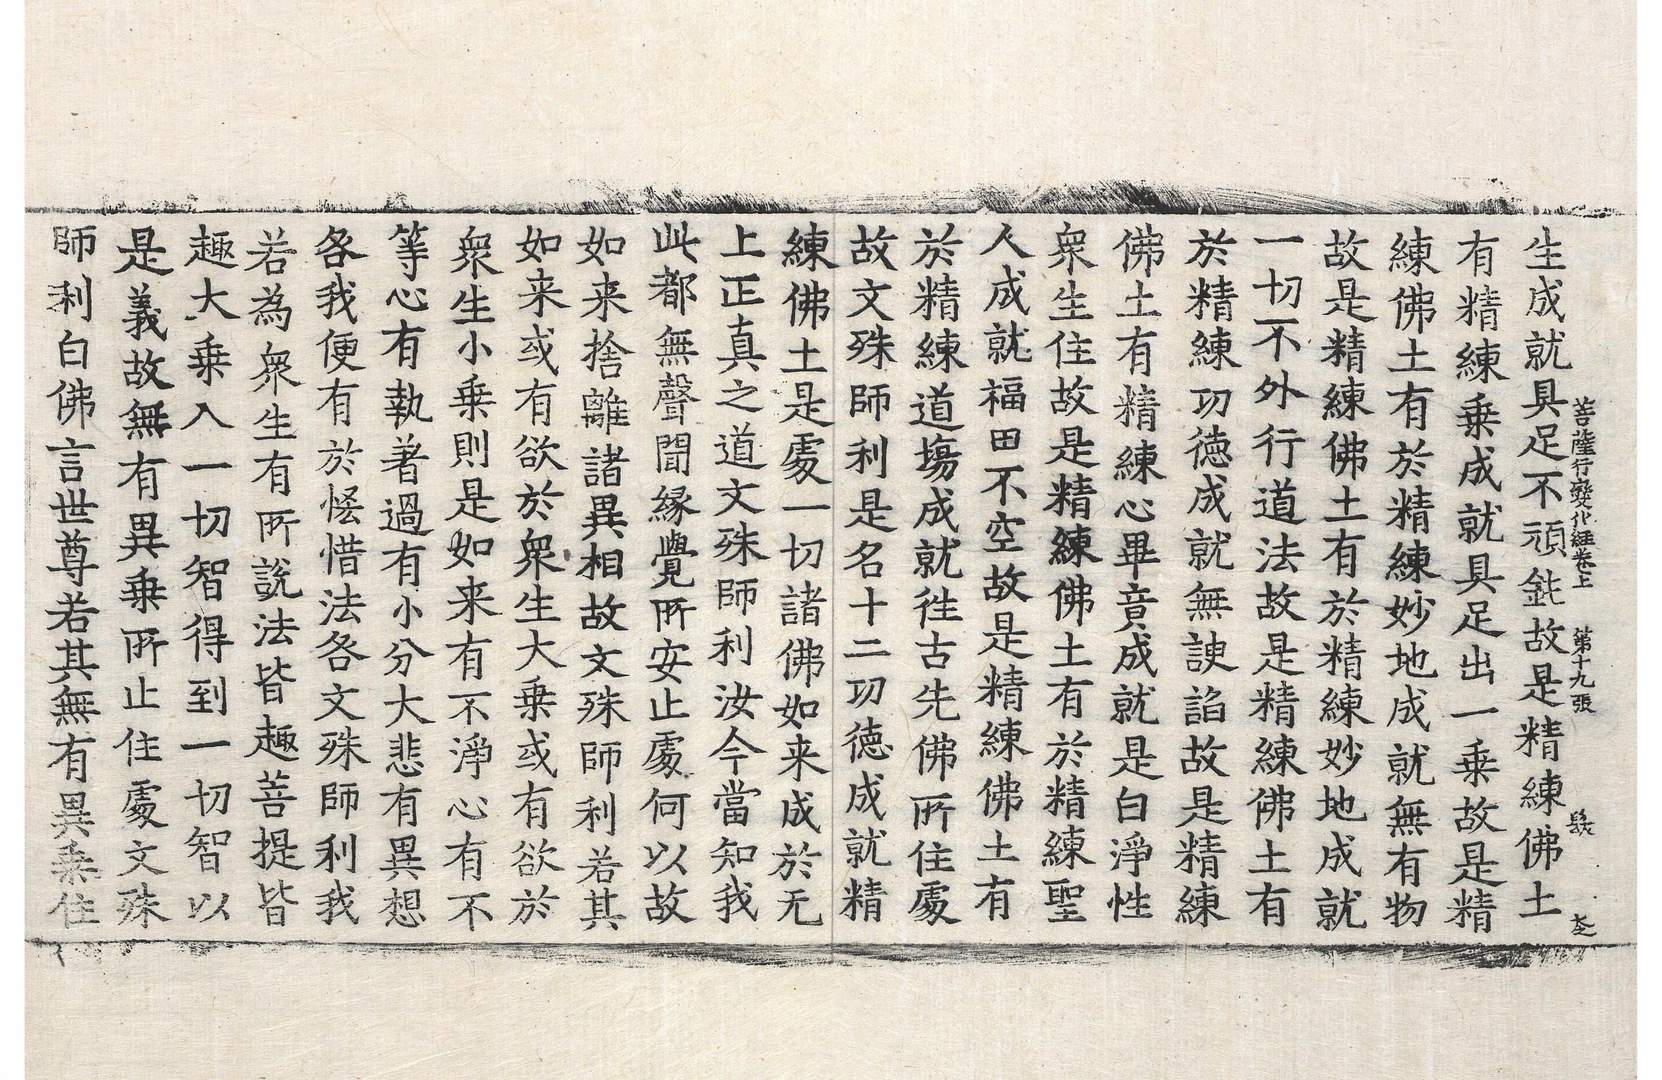 菩薩行變化經卷上　第十九張　髮
生成就具足不頑鈍故是精練佛土
有精練乗成就具足出一乗故是精
練佛土有於精練妙地成就無有物
故是精練佛土有於精練妙地成就
一切不外行道法故是精練佛土有
於精練功德成就無諛諂故是精練
佛土有精練心畢竟成就是白淨性
衆生住故是精練佛土有於精練聖
人成就福田不空故是精練佛土有
於精練道場成就徃古先佛所住處
故文殊師利是名十二功德成就精
練佛土是處一切諸佛如来成於无
上正真之道文殊師利汝今當知我
此都無聲聞縁覺所安止處何以故
如来捨離諸異相故文殊師利若其
如来或有欲於衆生大乗或有欲於
衆生小乗則是如来有不淨心有不
等心有執著過有小分大悲有異想
各我便有於悋惜法各文殊師利我
若為衆生有所說法皆趣菩提皆
趣大乗入一切智得到一切智以
是義故無有異乗所止住處文殊
師利白佛言世尊若其無有異乗住